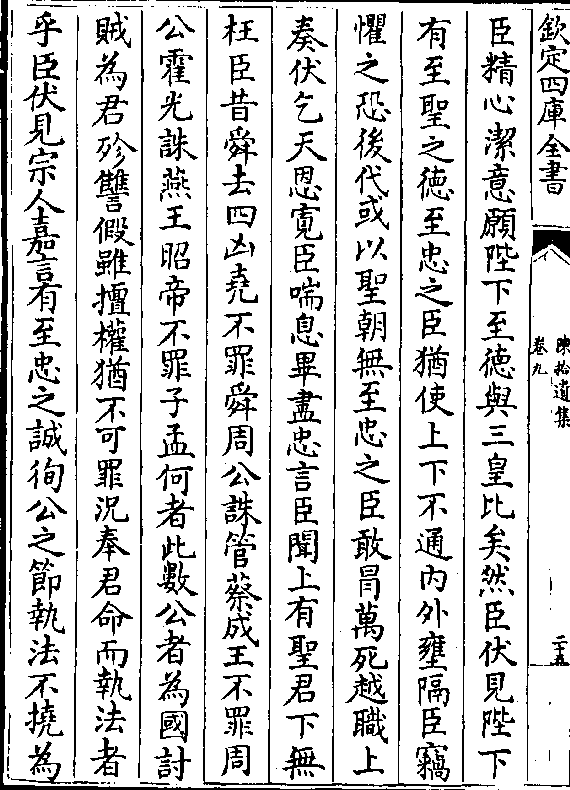 欽定四庫全書
陳拾遺集
卷九
二十五
臣精心潔意願陛下至徳與三皇比矣然臣伏見陛下
有至聖之徳至忠之臣猶使上下不通内外壅隔臣竊
懼之恐後代或以聖朝無至忠之臣敢冒萬死越職上
奏伏乞天恩寛臣喘息畢盡忠言臣聞上有聖君下無
枉臣昔舜去四凶堯不罪舜周公誅管蔡成王不罪周
公霍光誅燕王昭帝不罪子孟何者此數公者為國討
賊為君殄讐假雖擅權猶不可罪況奉君命而執法者
乎臣伏見宗人嘉言有至忠之誠徇公之節執法不撓為